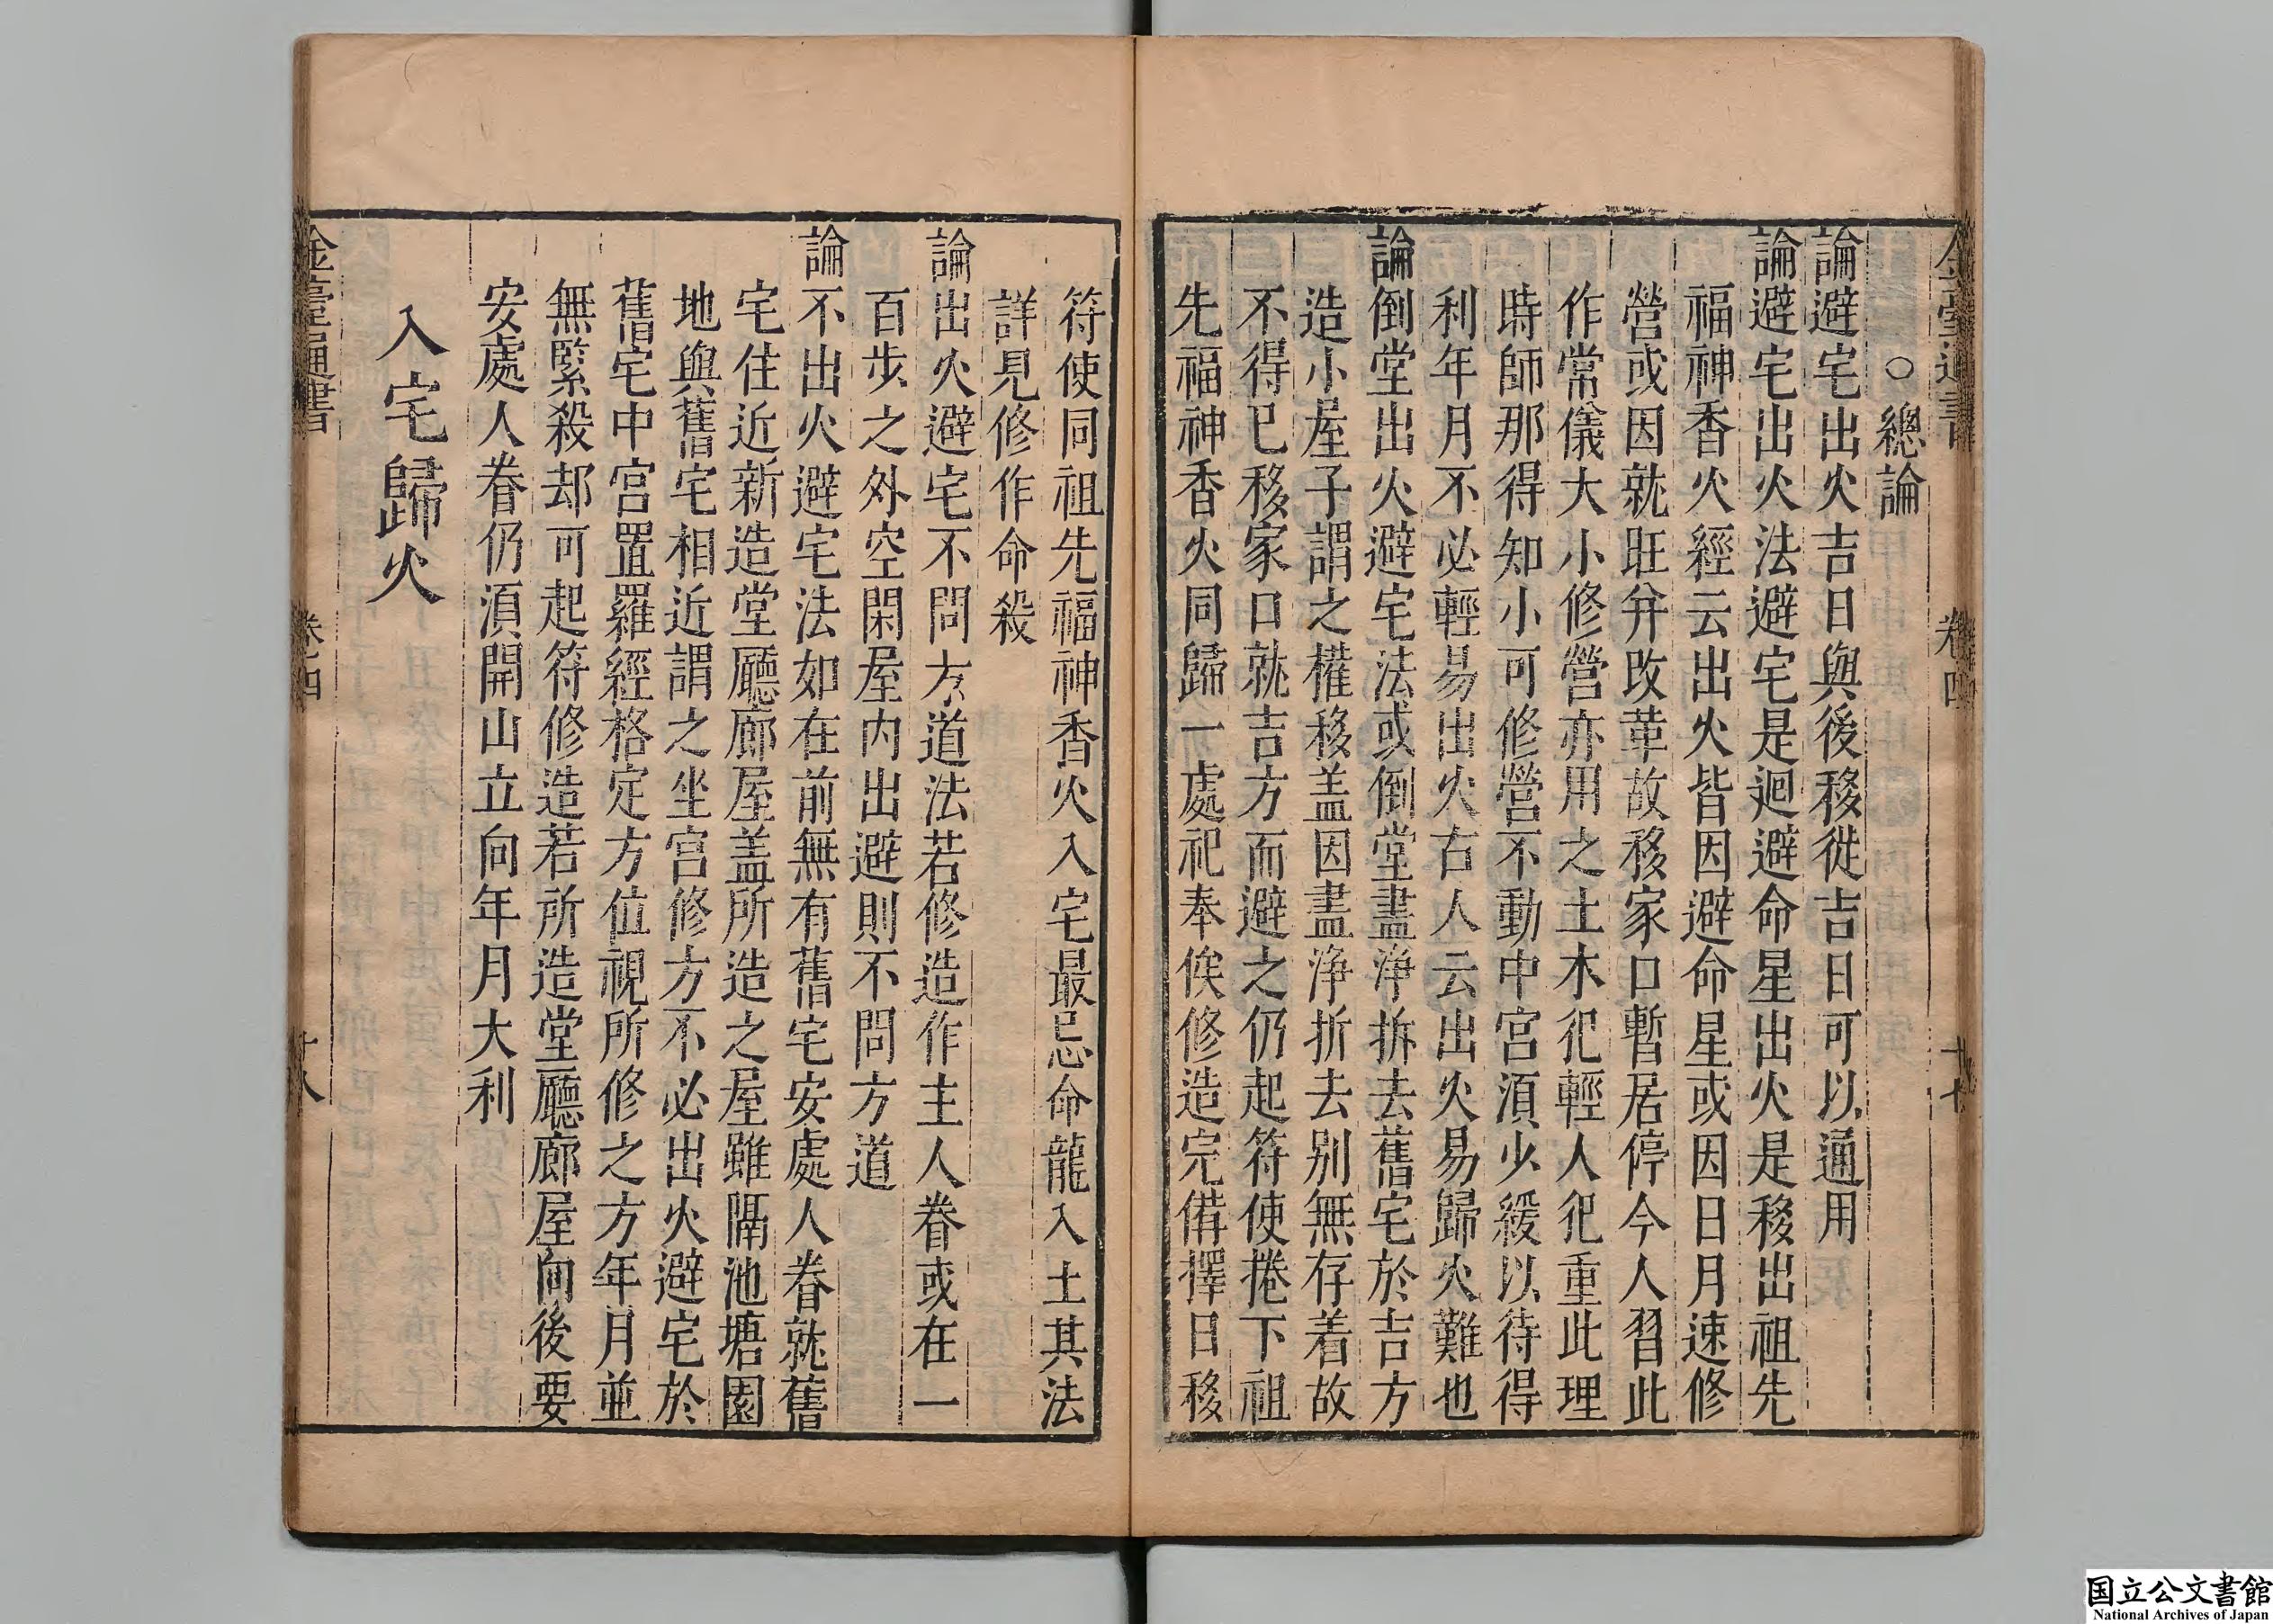 金臺通書 卷四 十七
○總論
論避宅出火吉日與後移徙吉日可以通用
論避宅出火法避宅是廻避命星出火是移出祖先
福神香火經云出火皆因避命星或因日月速修
營或因就旺并改革故移家口暫居停今人習此
作常儀大小修營亦用之土木犯輕人犯重此理
時師那得知小可修營不動中宮湏少緩以待得
利年月不必輕易出火右人云出火易歸火難也
論倒堂出火避宅法或倒堂盡淨拆去舊宅於吉方
造小屋子謂之權移盖因盡淨折去别無存着故
不得已移家口就吉方而避之仍起符使捲下祖
先福神香火同歸一處祀奉俟修造完備擇日移
符使同祖先福神香火入宅最忌命龍入土其法
詳見修作命殺
論出火避宅不問方道法若修造作主人眷或在一
百步之外空閑屋内出避則不問方道
論不出火避宅法如在前無有舊宅安處人眷就舊
宅住近新造堂廳廊屋盖所造之屋雖隔池塘園
地與舊宅相近謂之坐宮修方不必出火避宅於
舊宅中宮置羅經格定方位視所修之方年月並
無緊殺却可起符修造若所造堂廳廊屋向後要
安處人眷仍湏開山立向年月大利
入宅歸火
金臺通書 卷四 十八
国立公文書館
National Archives of Japan